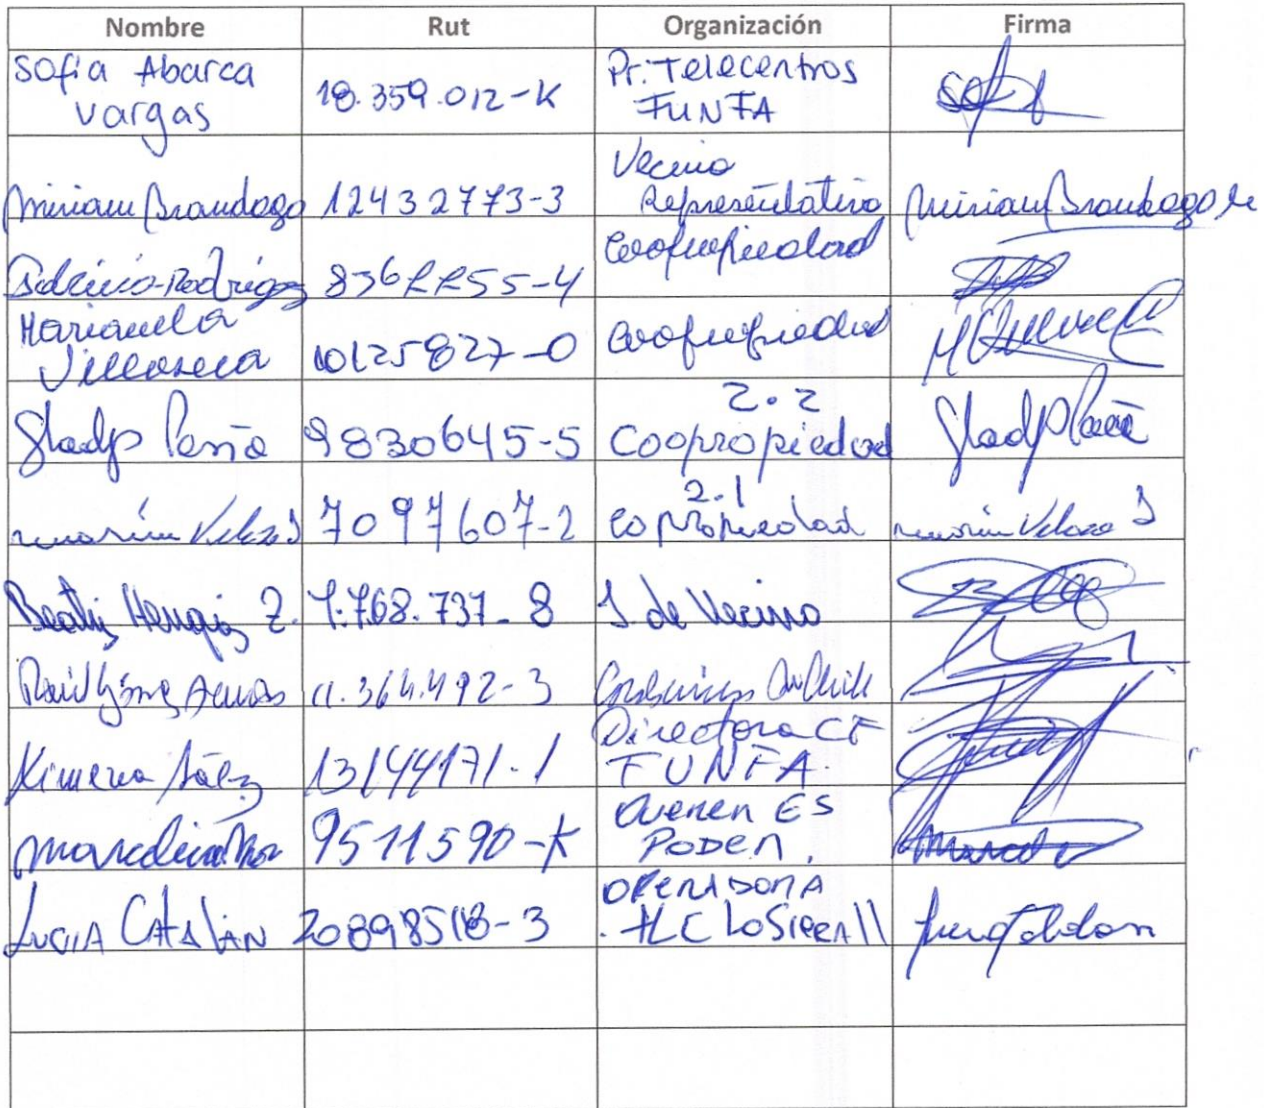 Nombre Rut Organización Firma
Sofía Abarca
Vargas
18.359.012-K
Pr. Telecentros
FUNFA
Miriam Brandago 12432773-3
Vecino
Representativo
Miriam Brandago
Rodríguez
Coopropiedad
Marianela
Villaseca
10125827-0
Coopropiedad
Gladys Peña 9830645-5
2.2
Coopropiedad
Gladys Peña
Veloz J 7097607-2
2.1
Copropiedad
Veloso J
Beatriz Z. 7.768.737-8 J. de Vecino
Raúl Gómez 11.364.492-3
Ximena Sáez 13144171-1
Directora CF
FUNFA.
9511590-K
Queren ES
PODER.
Lucía Catalán 20898518-3
OPERADORA
TLC Lo Sierra II